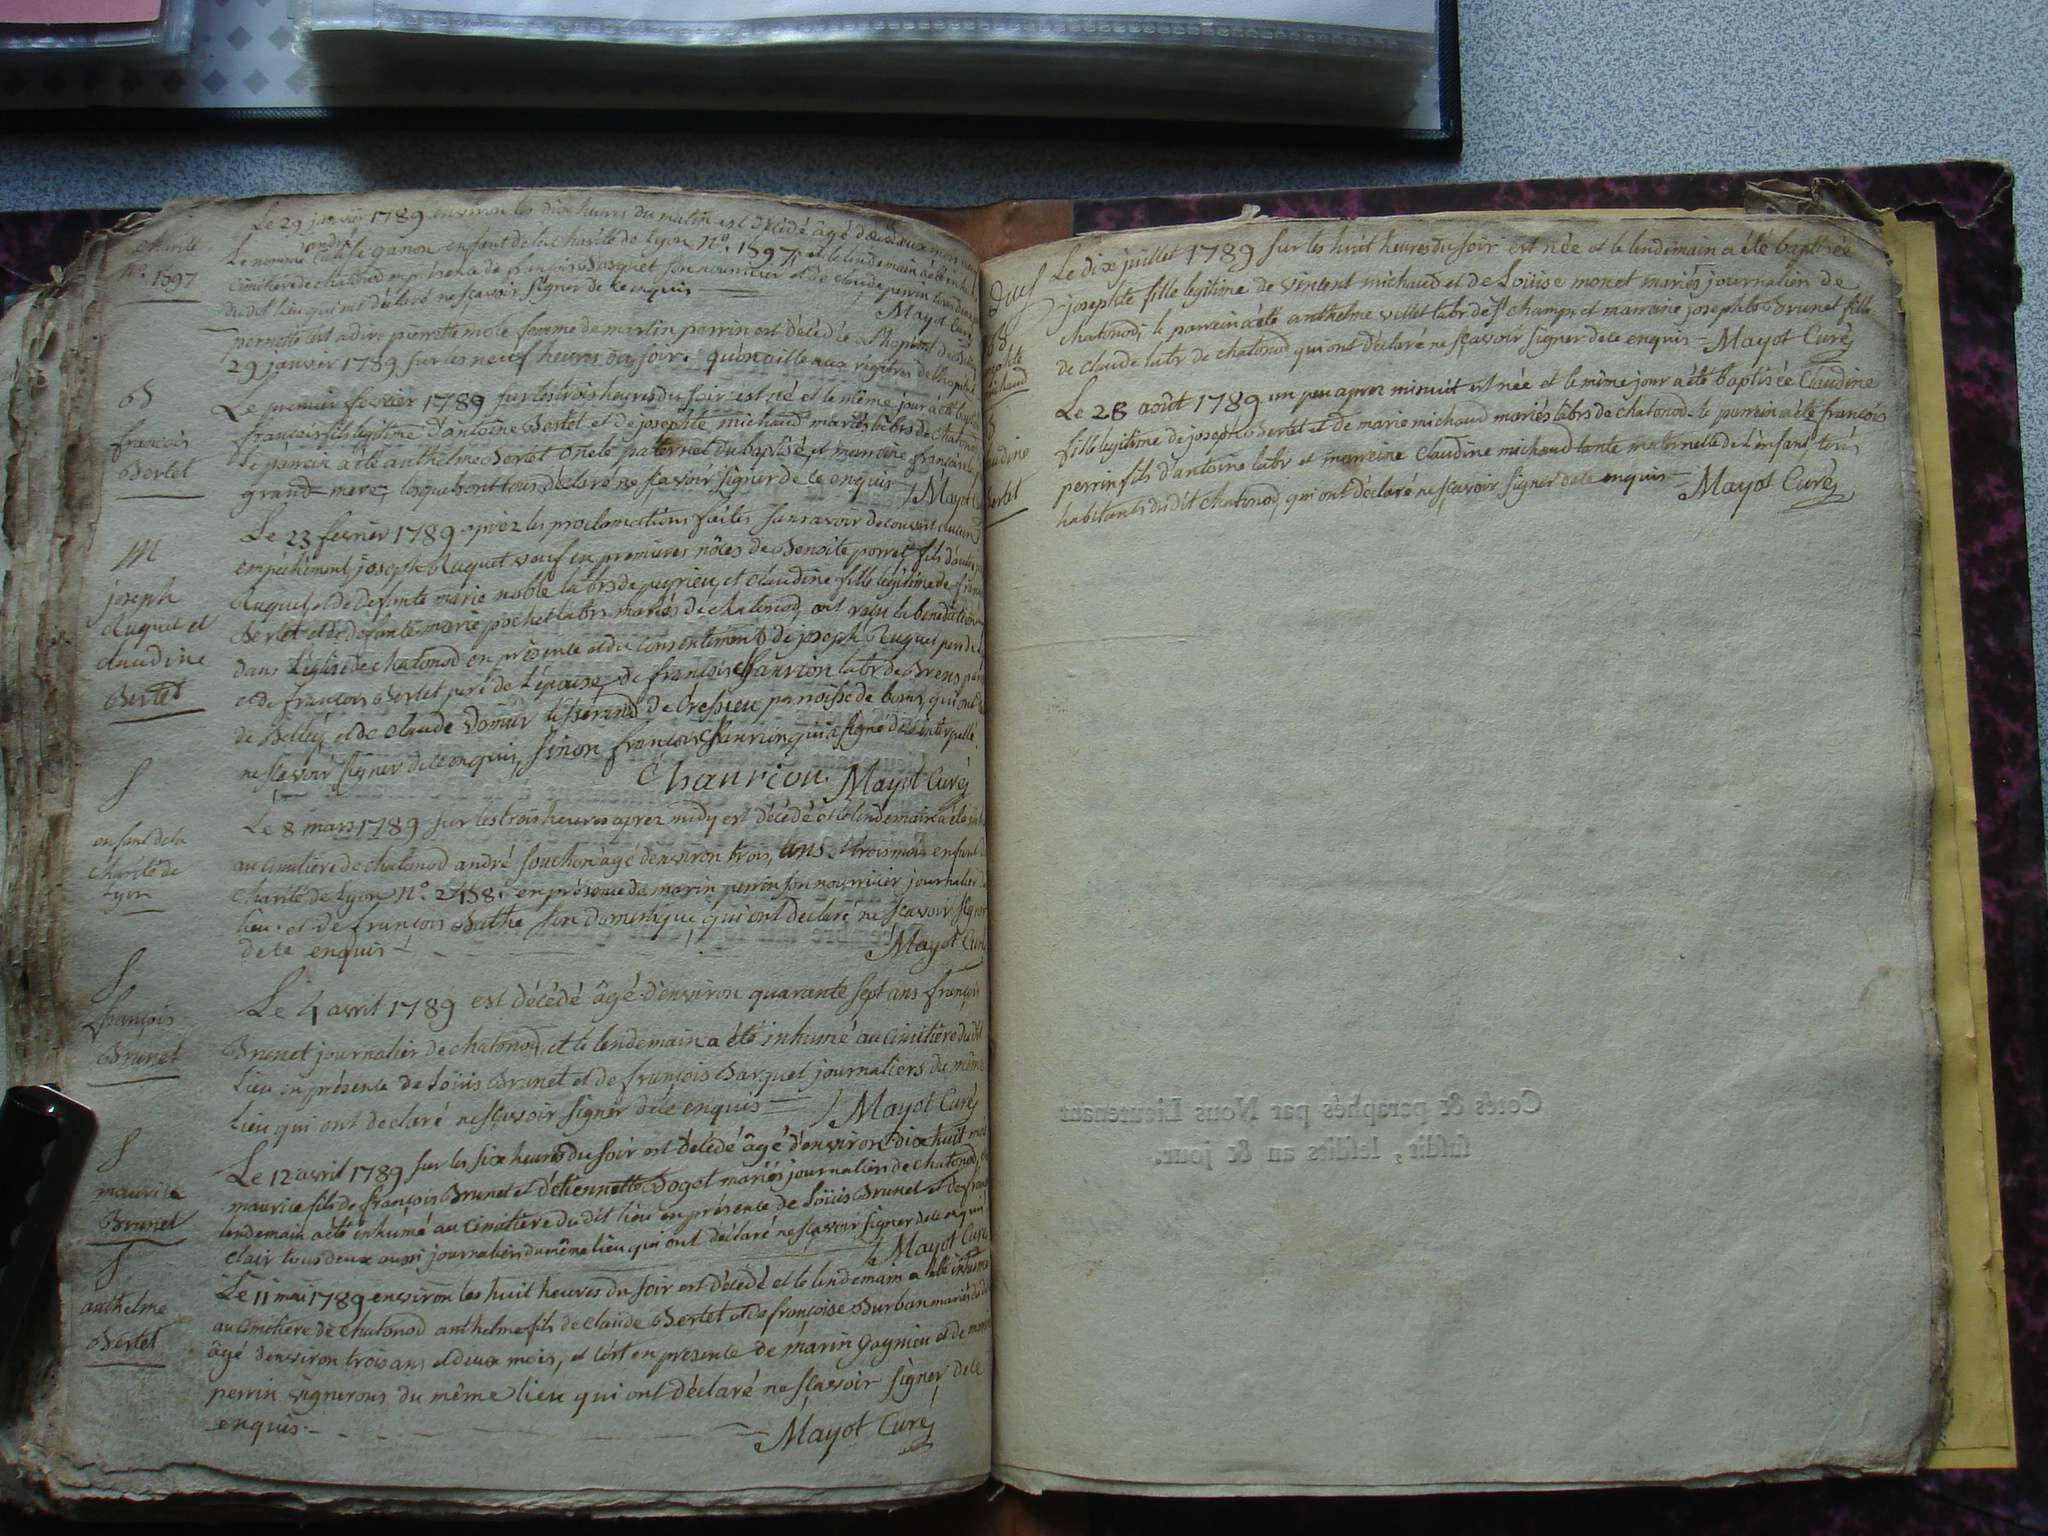 charité
N°. 1597
Le 29 janvier 1789 environ les dix heures du matin est décédé âgé de deux mois
andré
Le nommé ganon enfant de la charité de Lyon N°. 1597, et le lendemain a été
cimitiere de chatonod en présence de françois Basquet son nourricier et de claude perrin
du dit lieu qui ont déclaré ne sçavoir signer de ce enquis
Mayot Curé
pernette est a dire pierrette mole femme de martin perrin est décédée a l'hopital de
29 janvier 1789 sur les neuf heures du soir. qu'on aille aux régitres de l'hopital
B
françois
Bertet
Le premier fevrier 1789 sur les trois heures du soir est né et le même jour a été
françois fils legitime d'antoine Bertet et de josephte michaud mariés labrs de chatonod
Le parrein a été anthelme Bertet oncle paternel du baptisé, et marreine françoise
grand mere, lesquels ont tous déclaré ne sçavoir signer de ce enquis Mayot
M
joseph
Ruquet et
claudine
Bertet
Le 23 fevrier 1789 aprez les proclamations faites sans avoir decouvert aucun
empêchement joseph Ruquet veuf en premieres nôces de Benoite porret, fils d'autre
Ruquet, et de defunte marie noble labrs de peyrieu, et claudine fille legitime de
Bertet et de defunte marie pochet labrs mariés de chatonod, ont reçu la benediction
dans l'église de chatonod en présence et du consentement de joseph Ruquet pere de
et de françois Bertet pere de l'épouse, de françois Chanrion labr de Brens
de Belley, et de claude Domur tisserand de Cressieu parroisse de qui ont
ne sçavoir signer de ce enquis, sinon françois Chanrion qui a signé de ce interpellé
Chanrion Mayot Curé
S
enfant de la
charité de
Lyon
Le 8 mars 1789 sur les trois heures aprez midy est décédé et le lendemain a été
au cimitiere de chatonod andré souchon âgé d'environ trois ans et trois mois enfant
charité de Lyon N°. 2458. en présence de marin perrin son nourricier journalier
lieu. et de françois Bathe son domestique, qui ont declaré ne sçavoir signer
de ce enquis
Mayot Curé
S
françois
Brunet
Le 4 avril 1789 est décédé âgé d'environ quarante sept ans françois
Brunet journalier de chatonod, et le lendemain a été inhumé au cimitiere du dit
Lieu en présence de Loüis Brunet et de françois Basquet journaliers du même
Lieu qui ont declaré ne sçavoir signer de ce enquis Mayot Curé
S
maurice
Brunet
Le 12 avril 1789 sur les six heures du soir est décédé âgé d'environ dix huit mois
maurice fils de françois Brunet et d'étiennette Bogot mariés journaliers de chatonod,
lendemain a été inhumé au cimitiere du dit lieu en présence de Loüis Brunet et de
clair tous deux aussi journaliers du même lieu qui ont déclaré ne sçavoir signer de ce enquis
Mayot Curé
S
anthelme
Bertet
Le 11 mai 1789 environ les huit heures du soir est décédé et le lendemain a été inhumé
au cimetiere de chatonod anthelme fils de claude Bertet et de françoise Burban mariés
âgé d'environ trois ans et deux mois, et c'est en presence de marin gagnieu et de
perrin vignerons du même lieu qui ont déclaré ne sçavoir signer de ce
enquis
Mayot Curé
B
michaud
Le dix juillet 1789 sur les huit heures du soir est née et le lendemain a été baptisée
josephte fille legitime de vincent michaud et de Loüise monet mariés journaliers de
chatonod; le parrein a été anthelme vellet labr de st champ, et marreine josephte Brunet fille
de claude labr de chatonod qui ont déclaré ne sçavoir signer de ce enquis Mayot Curé
B
claudine
Bertet
Le 28 août 1789 un peu aprez minuit est née et le même jour a été baptisée Claudine
fille legitime de joseph Bertet et de marie michaud mariés labrs de chatonod. le parrein a été françois
perrin fils d'antoine labr et marreine Claudine michaud tante maternelle de l'enfant, tous
habitants du dit chatonod, qui ont déclaré ne sçavoir signer de ce enquis Mayot Curé
Cotés & paraphés par Nous Lieutenant
susdit, lesdits an & jour.